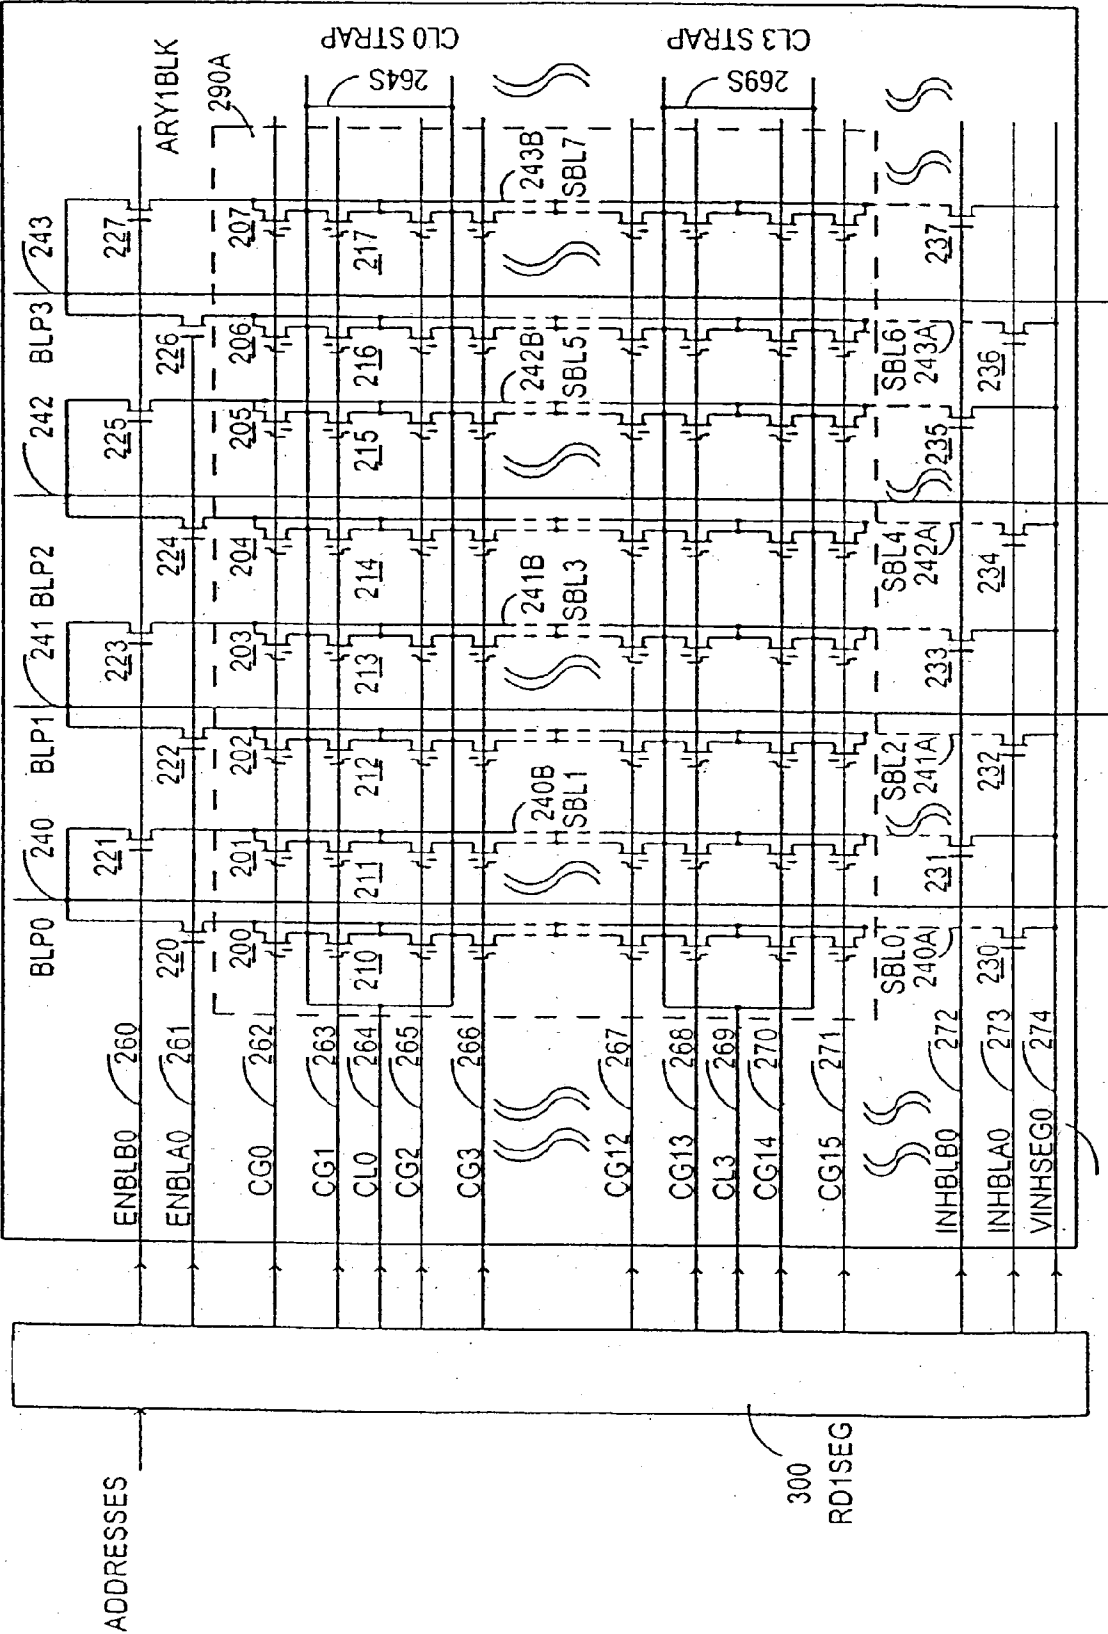 ADDRESSES
300
RD1SEG
ENBLB0 260
ENBLA0 261
CG0 262
CG1 263
CL0 264
CG2 265
CG3 266
CG12 267
CG13 268
CL3 269
CG14 270
CG15 271
INHBLB0 272
INHBLA0 273
VINHSEG0 274
BLP0 240
BLP1 241
BLP2 242
BLP3 243
ARY1BLK
290A
CL0 STRAP
264S
CL3 STRAP
269S
220 221 222 223 224 225 226 227
200 201 202 203 204 205 206 207
210 211 212 213 214 215 216 217
240B
SBL1
241B
SBL3
242B
SBL5
243B
SBL7
SBL0
240A
SBL2
241A
SBL4
242A
SBL6
243A
230 231 232 233 234 235 236 237